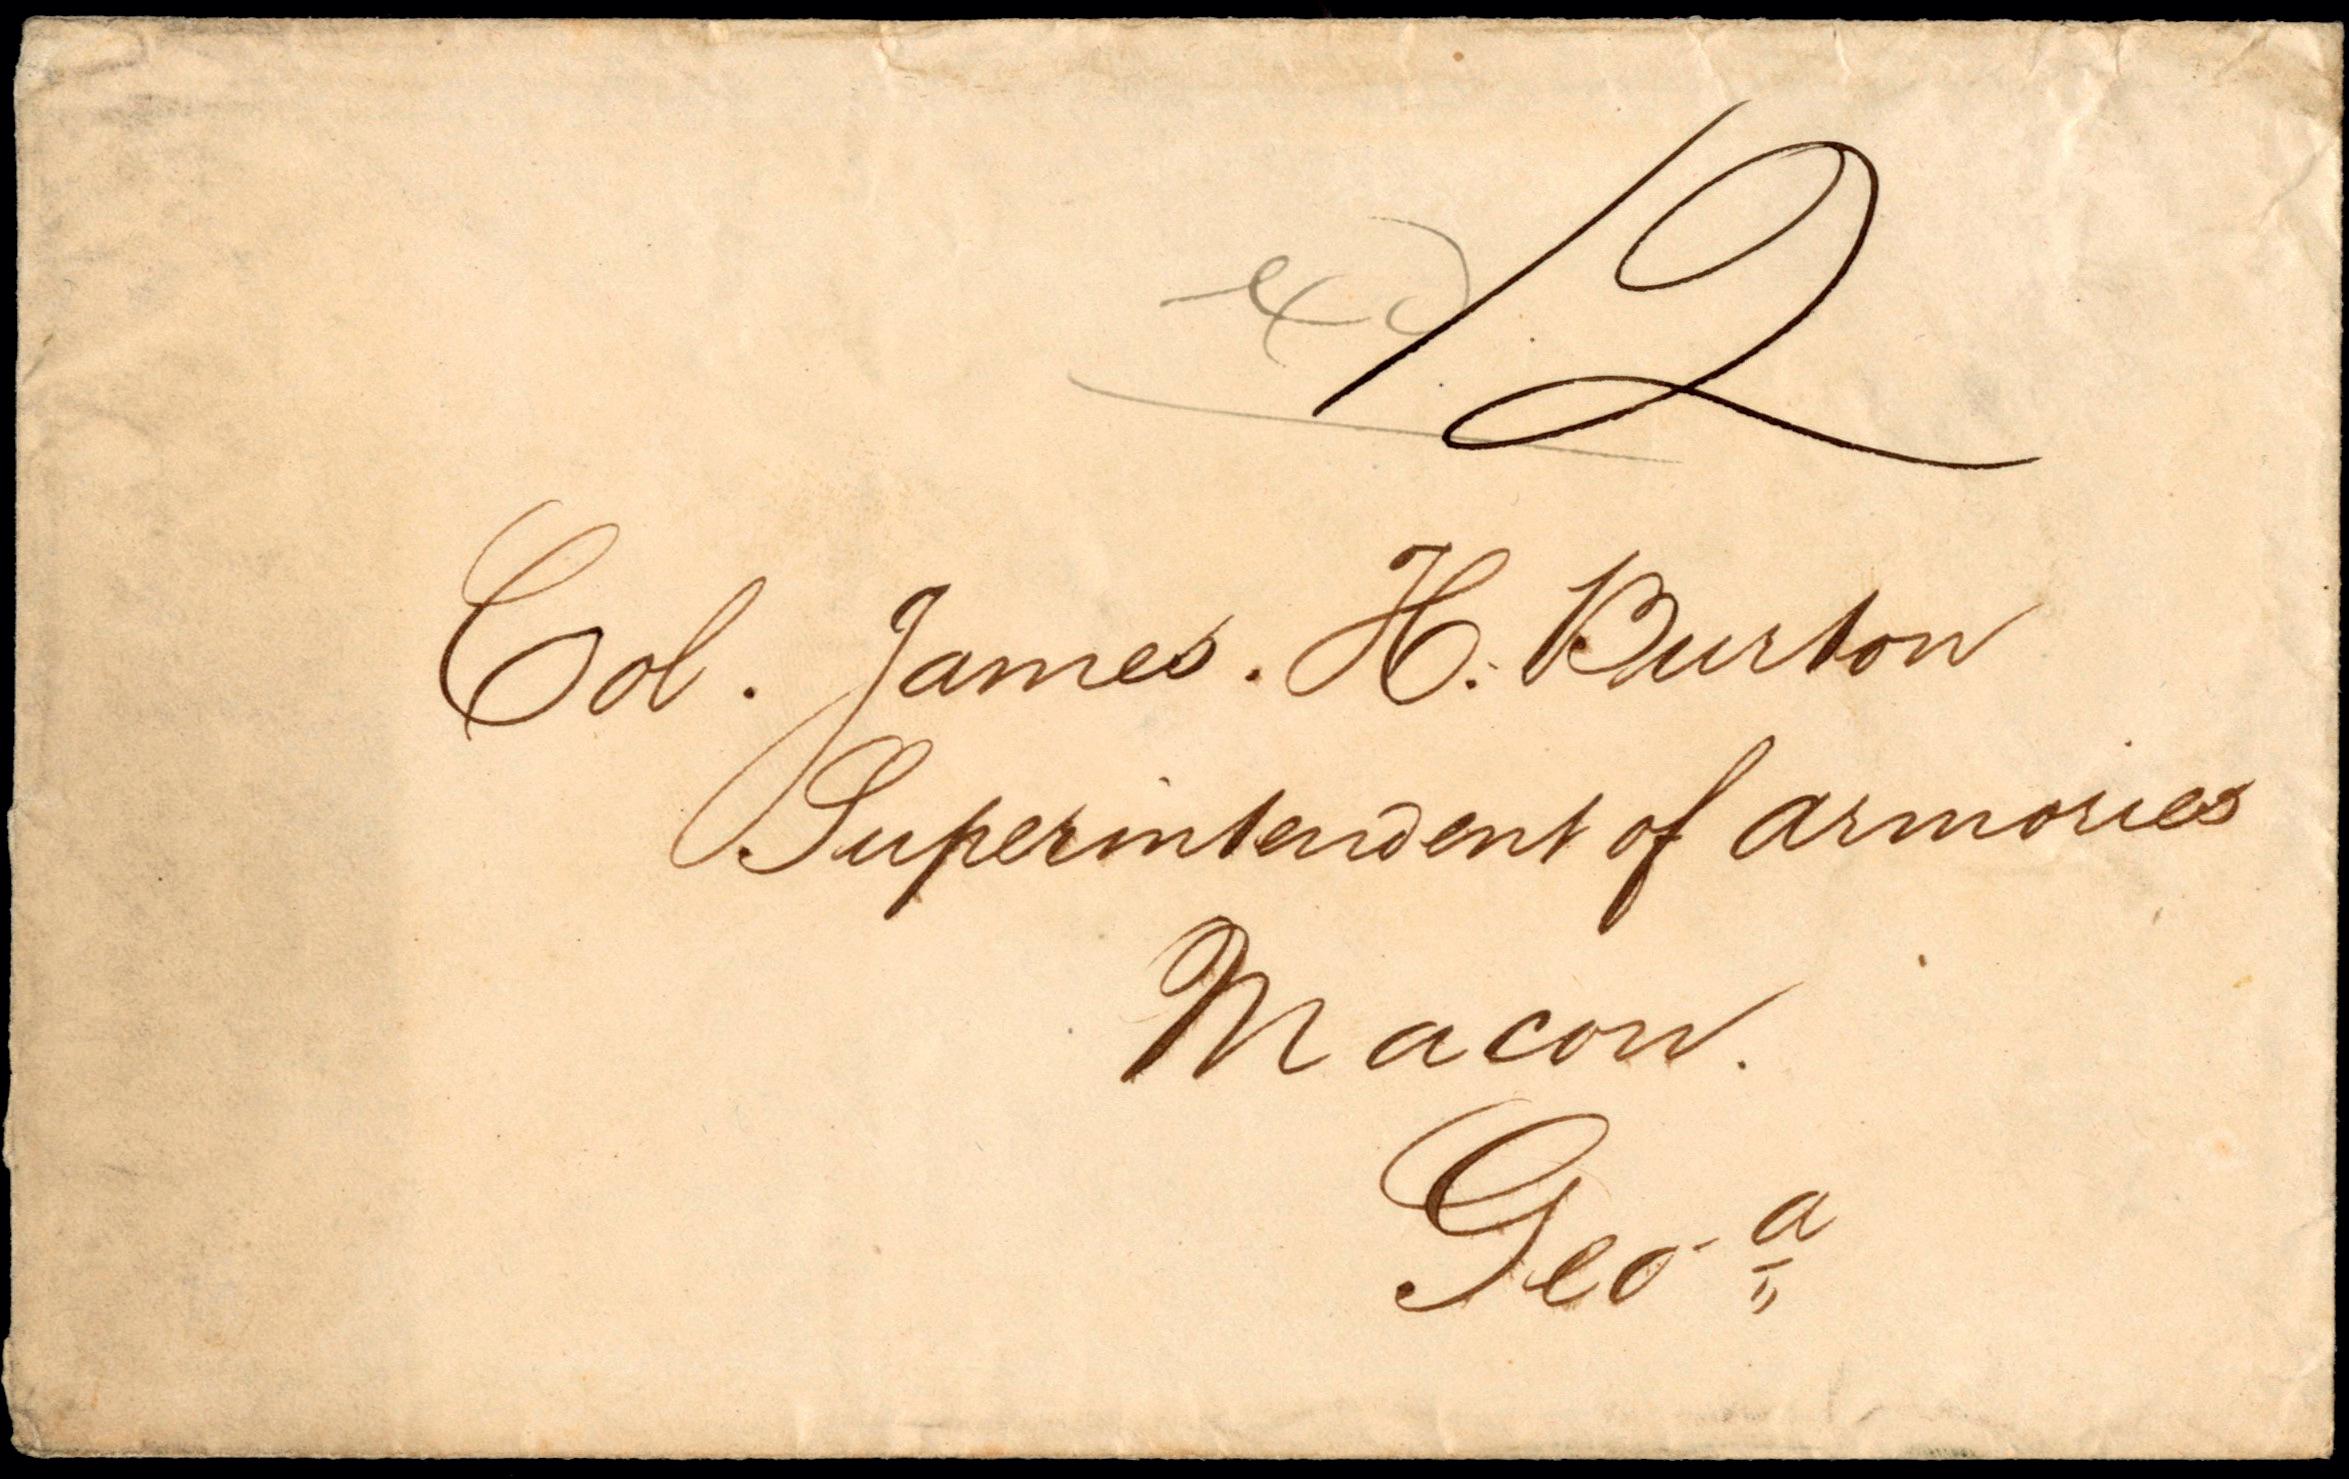 12
Col. James. H. Burton
Superintendent of armories
Macon.
Geoa